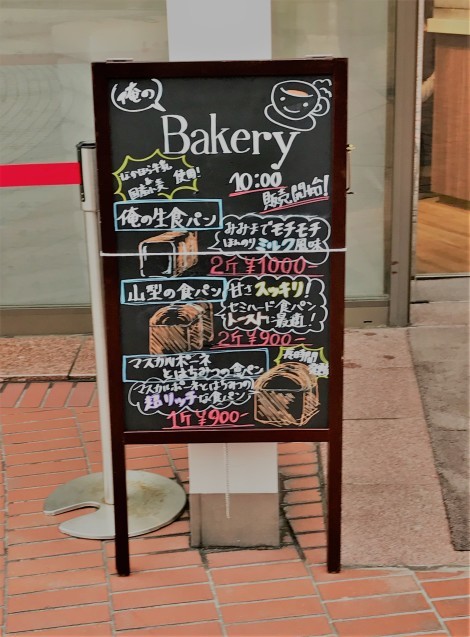 俺の
Bakery
なかほら牛乳
&
国産小麦
使用!
10:00
販売開始!
俺の生食パン
みみまでモチモチ
ほんのりミルク風味
2斤 ¥1000-
山型の食パン
甘さスッキリ!
セミハード食パン
トーストに最適!
2斤 ¥900-
マスカルポーネ
とはちみつの食パン
マスカルポーネとはちみつの
超リッチな食パン
1斤 ¥900-